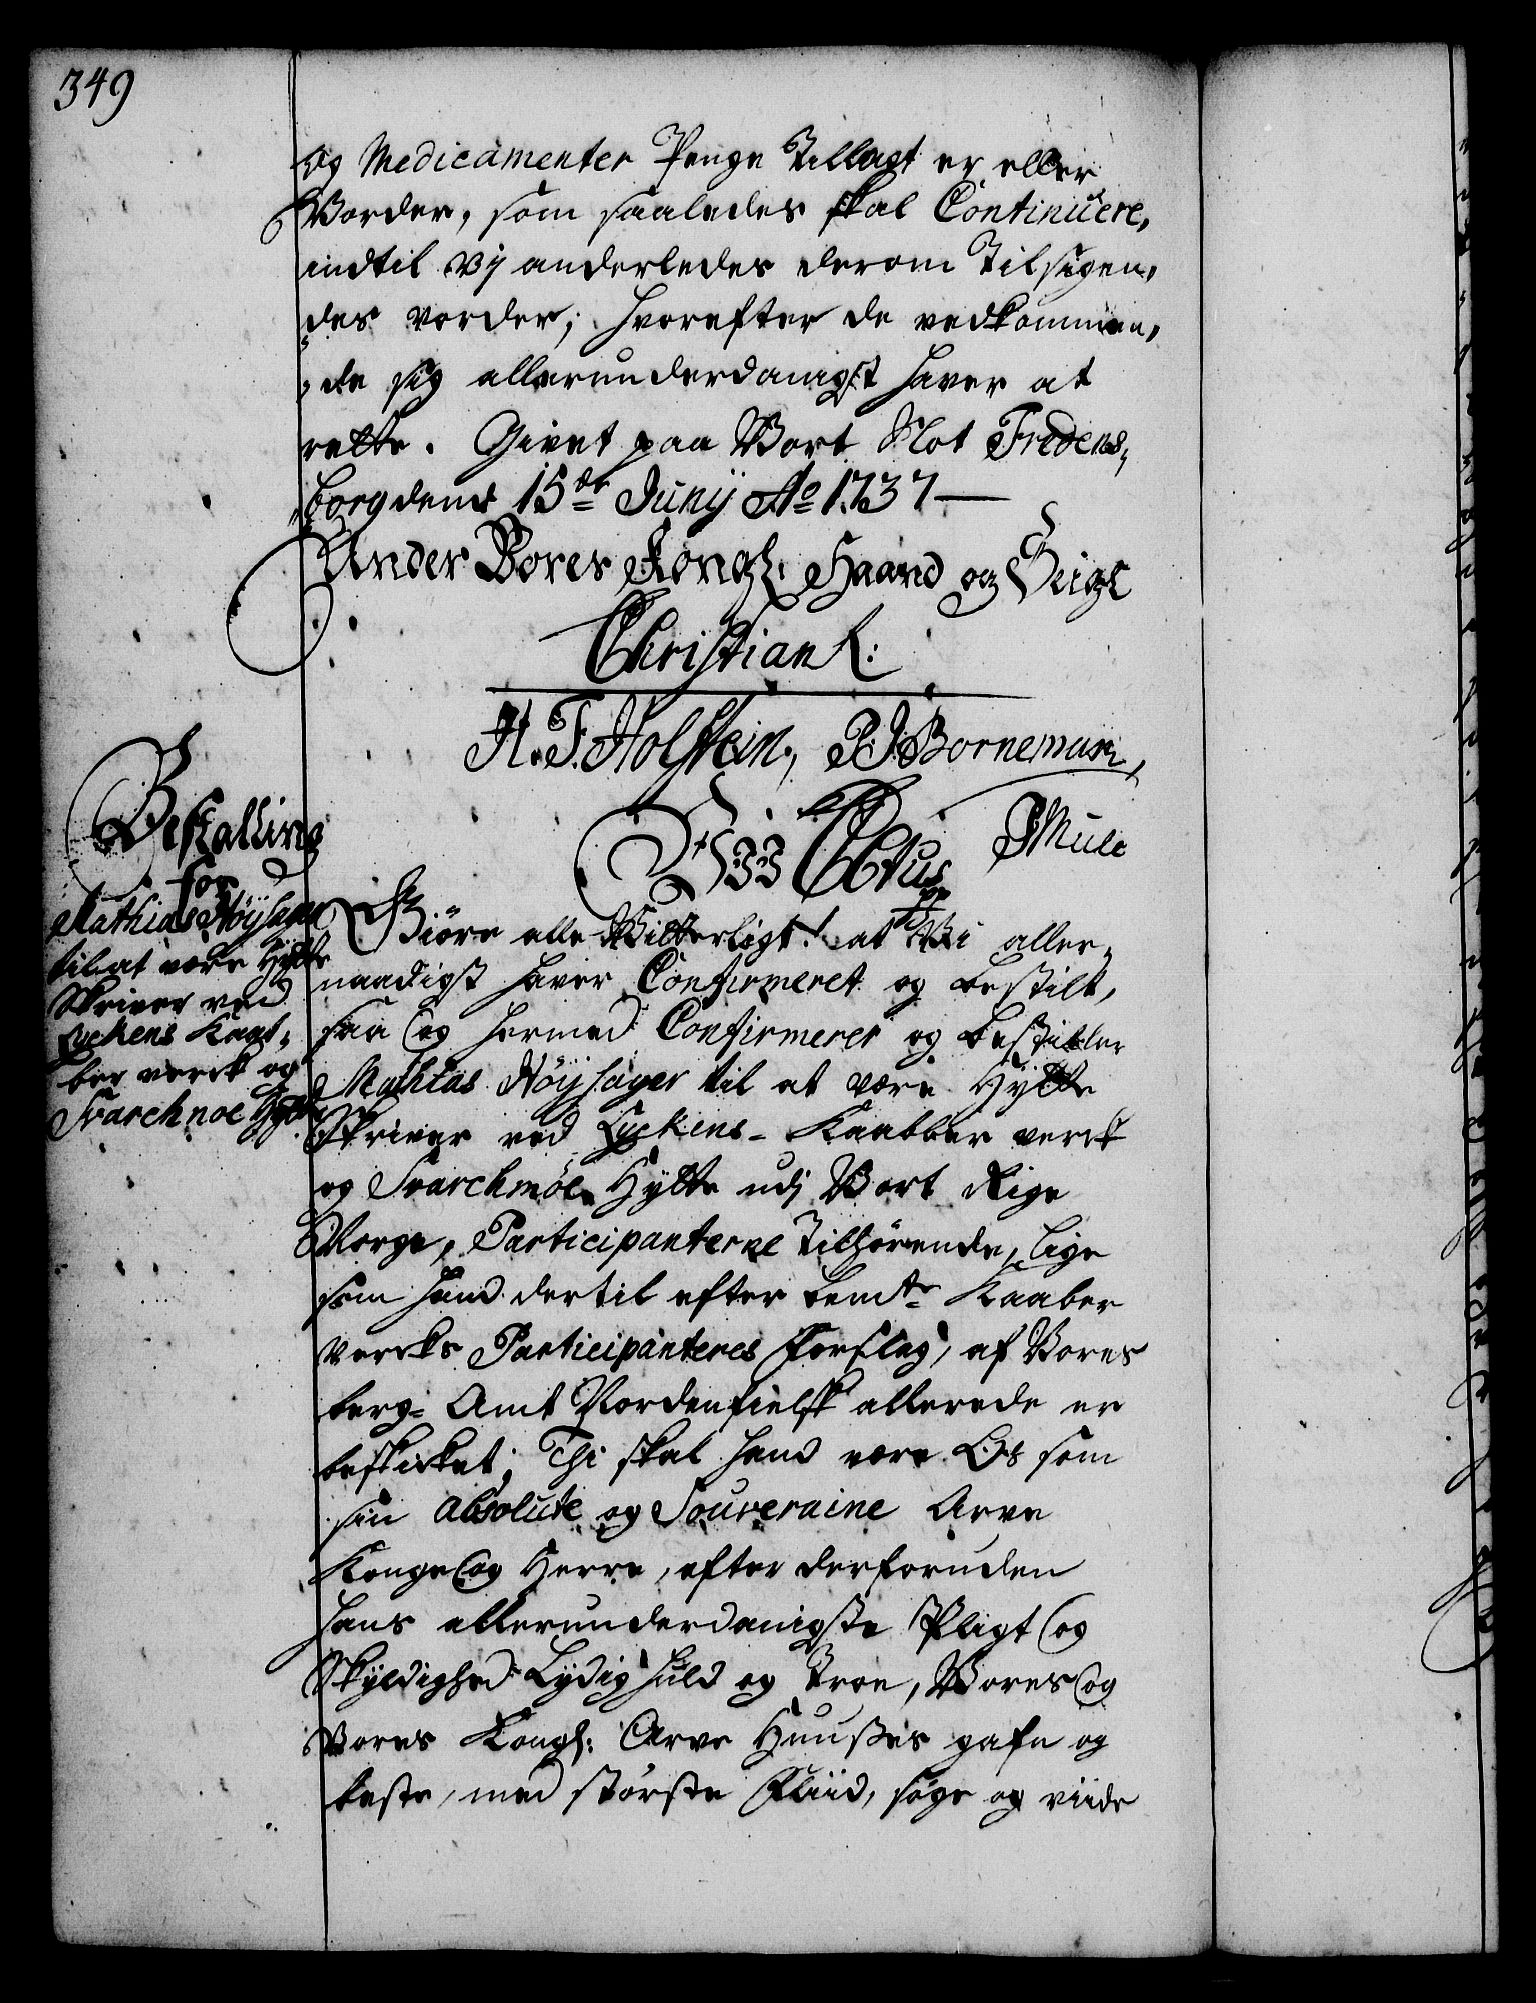 349
og Medicamenter Penge Tillagt er, eller
Vorder, som saaledes skal Continuere,
indtil Vij anderledes derom Tilsigen,
des vorder; hvorefter de vedkommen,
de sig allerunderdanigst haver at
rette. Givet paa Vort Slot Fredens,
borg dend 15de Junij Ao 1737
Under Vores Kongl: Haand og Seigl
Christian R:
H. F. Holstein, P. J. Borneman,
PMule
Wii Ctus
Bestalling
for
Mathias Höysager
til at være Hytte
Skriver ved
Lyckens Kaat,
ber verck og
Svarchnoe Hytte
Giöre alle Vitterligt! at Vi aller,
naadigst haver Confirmeret og bestilt,
saa og hermed Confirmerer og bestiller
Mathias Höysager til at være Hytte
Skriver ved Lyckens- Kaabber verck
og Svarchmöe Hytte udj Vort Rige
Norge, Participanterne Tilhörende, lige
som hand dertil efter bemte Kaaber
vercks Participanteres Forslag, af Vores
berg- Amt Nordenfielsk allerede er
beskicket; Thi skal hand være Os som
sin absolute og Souveraine Arve
Konge og Herre, efter derforuden
hans allerunderdanigste Pligt og
Skyldighed Lydig huld og Troe, Vores og
Vores Kongl: Arve Huuses gafn og
beste, med störste Fliid, söge og viide